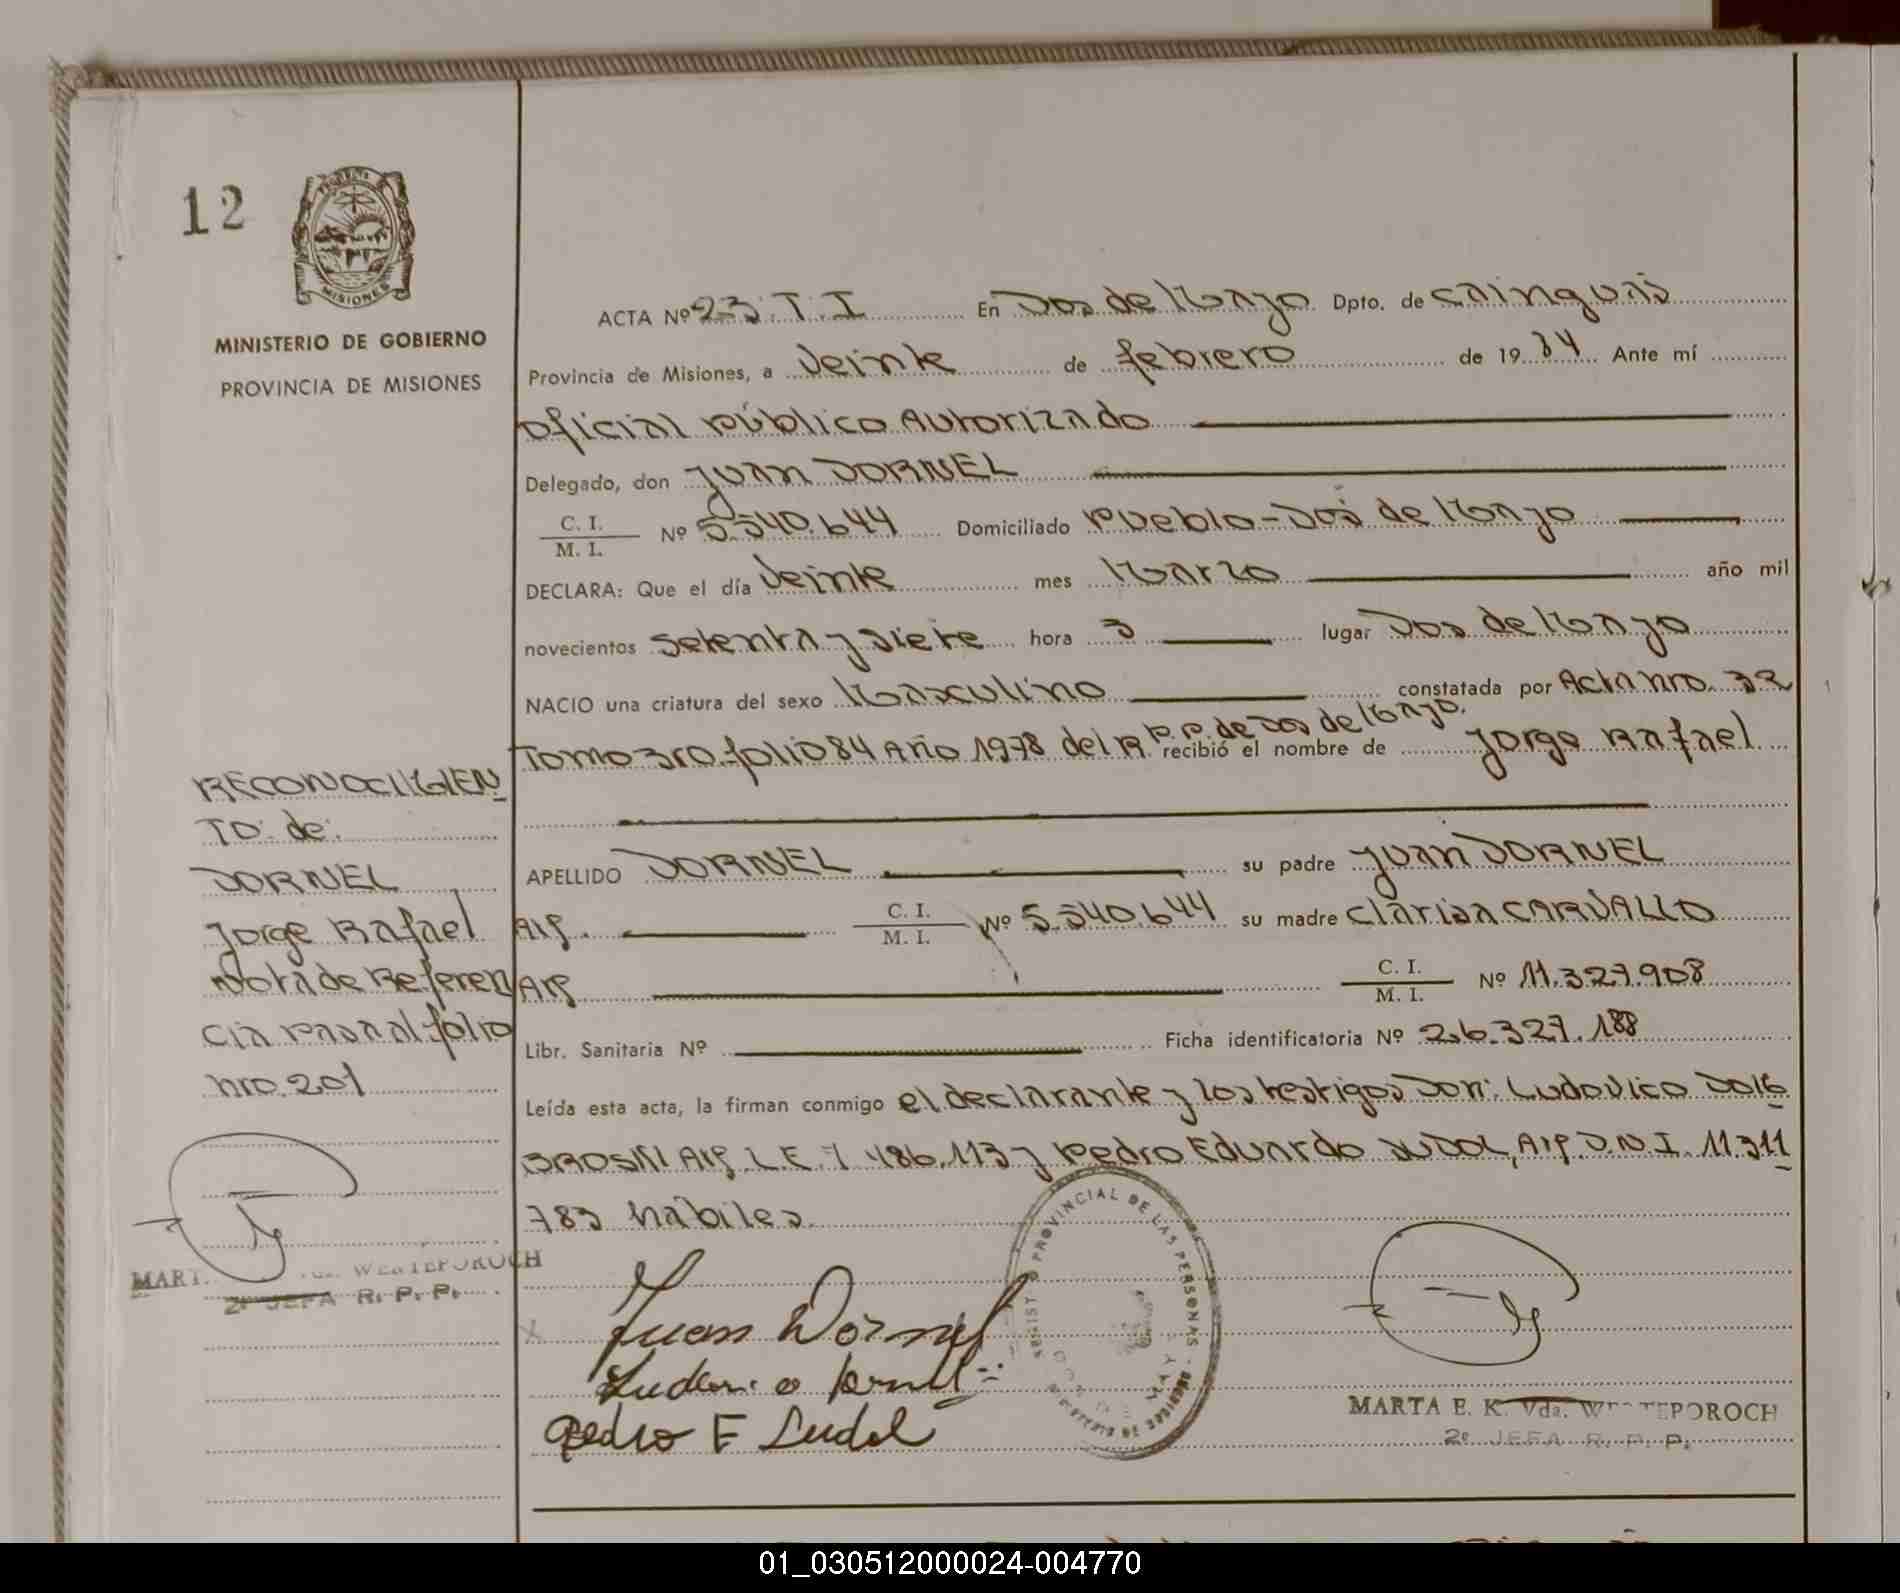 12
MISIONES
MINISTERIO DE GOBIERNO
PROVINCIA DE MISIONES
ACTA Nº 23. T. I En Dos de Mayo Dpto. de Cainguás
Provincia de Misiones, a Veinte de febrero de 19 84 Ante mí
Oficial Público Autorizado
Delegado, don Juan DORNEL
C. I.
M. I.
Nº 5.540.644 Domiciliado Pueblo - Dos de Mayo
DECLARA: Que el día Veinte mes Marzo año mil
novecientos setenta y siete hora 3 lugar Dos de Mayo
NACIO una criatura del sexo Masculino constatada por Acta nro. 32
Tomo 3ro. folio 84 Año 1978 del R.P.P. de Dos de Mayo. recibió el nombre de Jorge Rafael
APELLIDO DORNEL su padre Juan DORNEL
Arg. C. I. / M. I. Nº 5.540.644 su madre Clarisa CARVALLO
Arg C. I. / M. I. Nº 11.327.908
Libr. Sanitaria Nº Ficha identificatoria Nº 26.327.188
Leída esta acta, la firman conmigo el declarante y los testigos Don: Ludovico DOM
BROSKI Arg. L.E. 7 486.113 y Pedro Eduardo Arg. D.N.I. 11 311
783 hábiles.
RECONOCIMIEN
TO: de:
DORNEL
Jorge Rafael
Nota de Referen
cia Pasa al folio
nro. 201
2º JEFA R. P. P.
Juan Dornel
Pedro E
PROVINCIAL DE LAS PERSONAS
MARTA E. K. Vda. WESTEPOROCH
2º JEFA R. P. P.
01_030512000024-004770